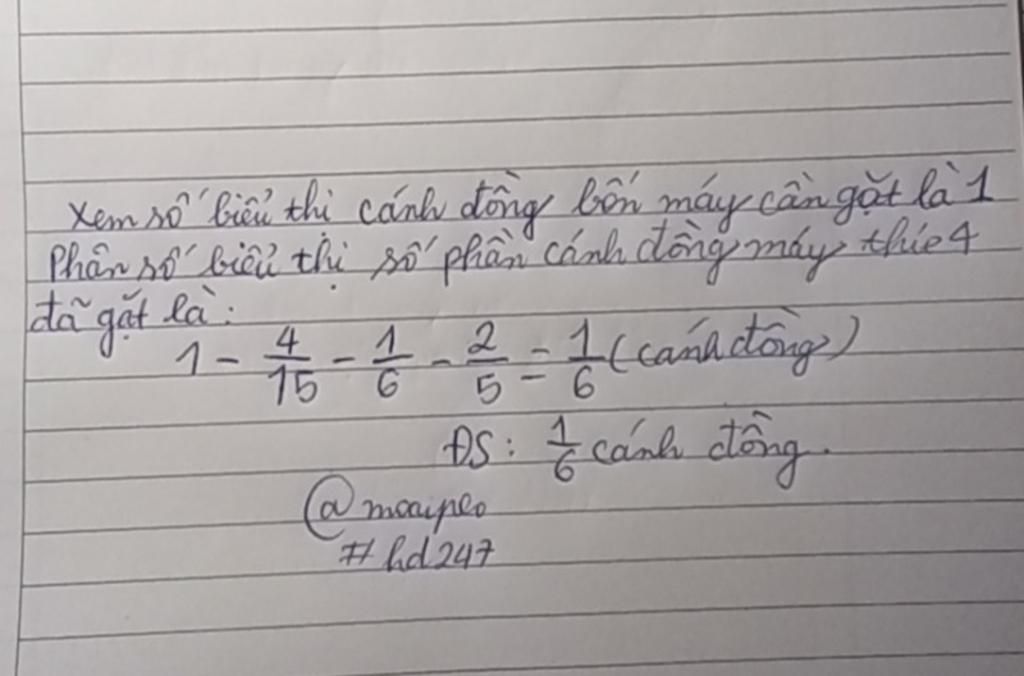 Xem số biểu thị cánh đồng bốn máy cần gặt là 1
Phân số biểu thị số phần cánh đồng máy thứ 4
đã gặt là:
1 - 4/15 - 1/6 - 2/5 = 1/6 (cánh đồng)
ĐS: 1/6 cánh đồng.
@moaipeo
#hd247